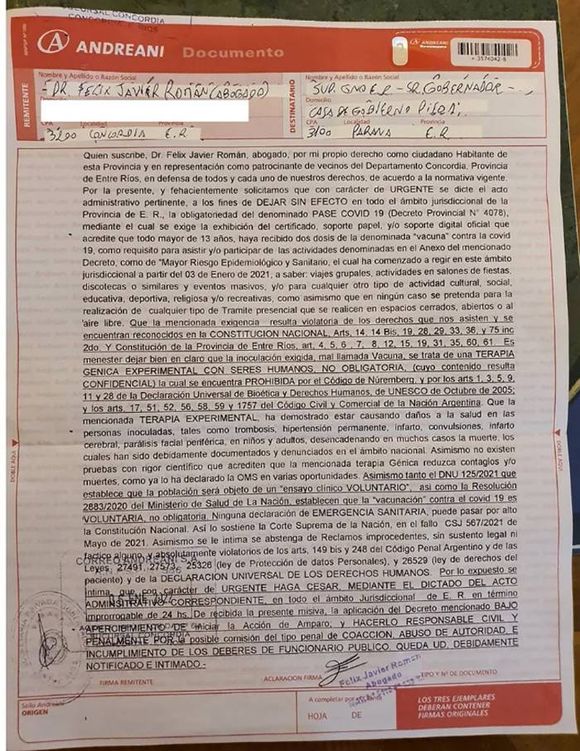 SUCURSAL CONCORDIA
ANDREANI Documento
ANDREANI
3574042-8
REMITENTE
Nombre y Apellido o Razón Social
DR. FELIX JAVIER ROMÁN (ABOGADO)
CPA Localidad Provincia
3200 CONCORDIA E.R
DESTINATARIO
Nombre y Apellido o Razón Social
SUP. GNO E.R - SR. GOBERNADOR -
Domicilio
CASA DE GOBIERNO
CPA Localidad Provincia
3100 PARANA E.R
Quien suscribe, Dr. Felix Javier Román, abogado, por mi propio derecho como ciudadano Habitante de
esta Provincia y en representación como patrocinante de vecinos del Departamento Concordia, Provincia
de Entre Ríos, en defensa de todos y cada uno de nuestros derechos, de acuerdo a la normativa vigente.
Por la presente, y fehacientemente solicitamos que con carácter de URGENTE se dicte el acto
administrativo pertinente, a los fines de DEJAR SIN EFECTO en todo el ámbito jurisdiccional de la
Provincia de E. R., la obligatoriedad del denominado PASE COVID 19 (Decreto Provincial N° 4078),
mediante el cual se exige la exhibición del certificado, soporte papel, y/o soporte digital oficial que
acredite que todo mayor de 13 años, haya recibido dos dosis de la denominada "vacuna" contra la covid
19, como requisito para asistir y/o participar de las actividades denominadas en el Anexo del mencionado
Decreto, como de "Mayor Riesgo Epidemiológico y Sanitario, el cual ha comenzado a regir en este ámbito
jurisdiccional a partir del 03 de Enero de 2021, a saber: viajes grupales, actividades en salones de fiestas,
discotecas o similares y eventos masivos, y/o para cualquier otro tipo de actividad cultural, social,
educativa, deportiva, religiosa y/o recreativas, como asimismo que en ningún caso se pretenda para la
realización de cualquier tipo de Tramite presencial que se realicen en espacios cerrados, abiertos o al
aire libre. Que la mencionada exigencia resulta violatoria de los derechos que nos asisten y se
encuentran reconocidos en la CONSTITUCION NACIONAL, Arts, 14, 14 Bis, 19, 28, 29, 33, 36, y 75 inc
2do. Y Constitución de la Provincia de Entre Ríos, art, 4, 5, 6 , 7, 8, 12, 15, 19, 31, 35, 60, 61. Es
menester dejar bien en claro que la inoculación exigida, mal llamada Vacuna, se trata de una TERAPIA
GENICA EXPERIMENTAL CON SERES HUMANOS, NO OBLIGATORIA, (cuyo contenido resulta
CONFIDENCIAL) la cual se encuentra PROHIBIDA por el Código de Núremberg, y por los arts 1, 3, 5, 9,
11 y 28 de la Declaración Universal de Bioética y Derechos Humanos, de UNESCO de Octubre de 2005;
y los arts, 17, 51, 52, 56, 58, 59 y 1757 del Código Civil y Comercial de la Nación Argentina. Que la
mencionada TERAPIA EXPERIMENTAL, ha demostrado estar causando daños a la salud en las
personas inoculadas, tales como trombosis, hipertensión permanente, infarto, convulsiones, infarto
cerebral, parálisis facial periférica, en niños y adultos, desencadenando en muchos casos la muerte, los
cuales han sido debidamente documentados y denunciados en el ámbito nacional. Asimismo no existen
pruebas con rigor científico que acrediten que la mencionada terapia Génica reduzca contagios y/o
muertes, como ya lo ha declarado la OMS en varias oportunidades. Asimismo tanto el DNU 125/2021 que
establece que la población será objeto de un "ensayo clínico VOLUNTARIO", así como la Resolución
2883/2020 del Ministerio de Salud de La Nación, establecen que la "vacunación" contra el covid 19 es
VOLUNTARIA, no obligatoria. Ninguna declaración de EMERGENCIA SANITARIA, puede pasar por alto
la Constitución Nacional. Así lo sostiene la Corte Suprema de la Nación, en el fallo CSJ 567/2021 de
Mayo de 2021. Asimismo se le intima se abstenga de Reclamos improcedentes, sin sustento legal ni
fáctico alguno, y absolutamente violatorios de los arts, 149 bis y 248 del Código Penal Argentino y de las
Leyes 27491, 27573, 25326 (ley de Protección de datos Personales), y 26529 (ley de derechos del
paciente) y de la DECLARACION UNIVERSAL DE LOS DERECHOS HUMANOS. Por lo expuesto se
intima que con carácter de URGENTE HAGA CESAR, MEDIANTE EL DICTADO DEL ACTO
ADMINISTRATIVO CORRESPONDIENTE, en todo el ámbito Jurisdiccional de E. R. en término
improrrogable de 24 hs. De recibida la presente misiva, la aplicación del Decreto mencionado BAJO
APERCIBIMIENTO DE iniciar la Acción de Amparo; y HACERLO RESPONSABLE CIVIL Y
PENALMENTE POR la posible comisión del tipo penal de COACCION, ABUSO DE AUTORIDAD, E
INCUMPLIMIENTO DE LOS DEBERES DE FUNCIONARIO PUBLICO. QUEDA UD. DEBIDAMENTE
NOTIFICADO E INTIMADO.-
CORREO ANDREANI S.A.
ENE 2022
FIRMA REMITENTE
ACLARACION FIRMA
TIPO Y Nº DE DOCUMENTO
Felix Javier Román
Abogado
Sello Andreani
ORIGEN
A completar por
HOJA DE
LOS TRES EJEMPLARES
DEBERAN CONTENER
FIRMAS ORIGINALES
DOBLE AQUÍ